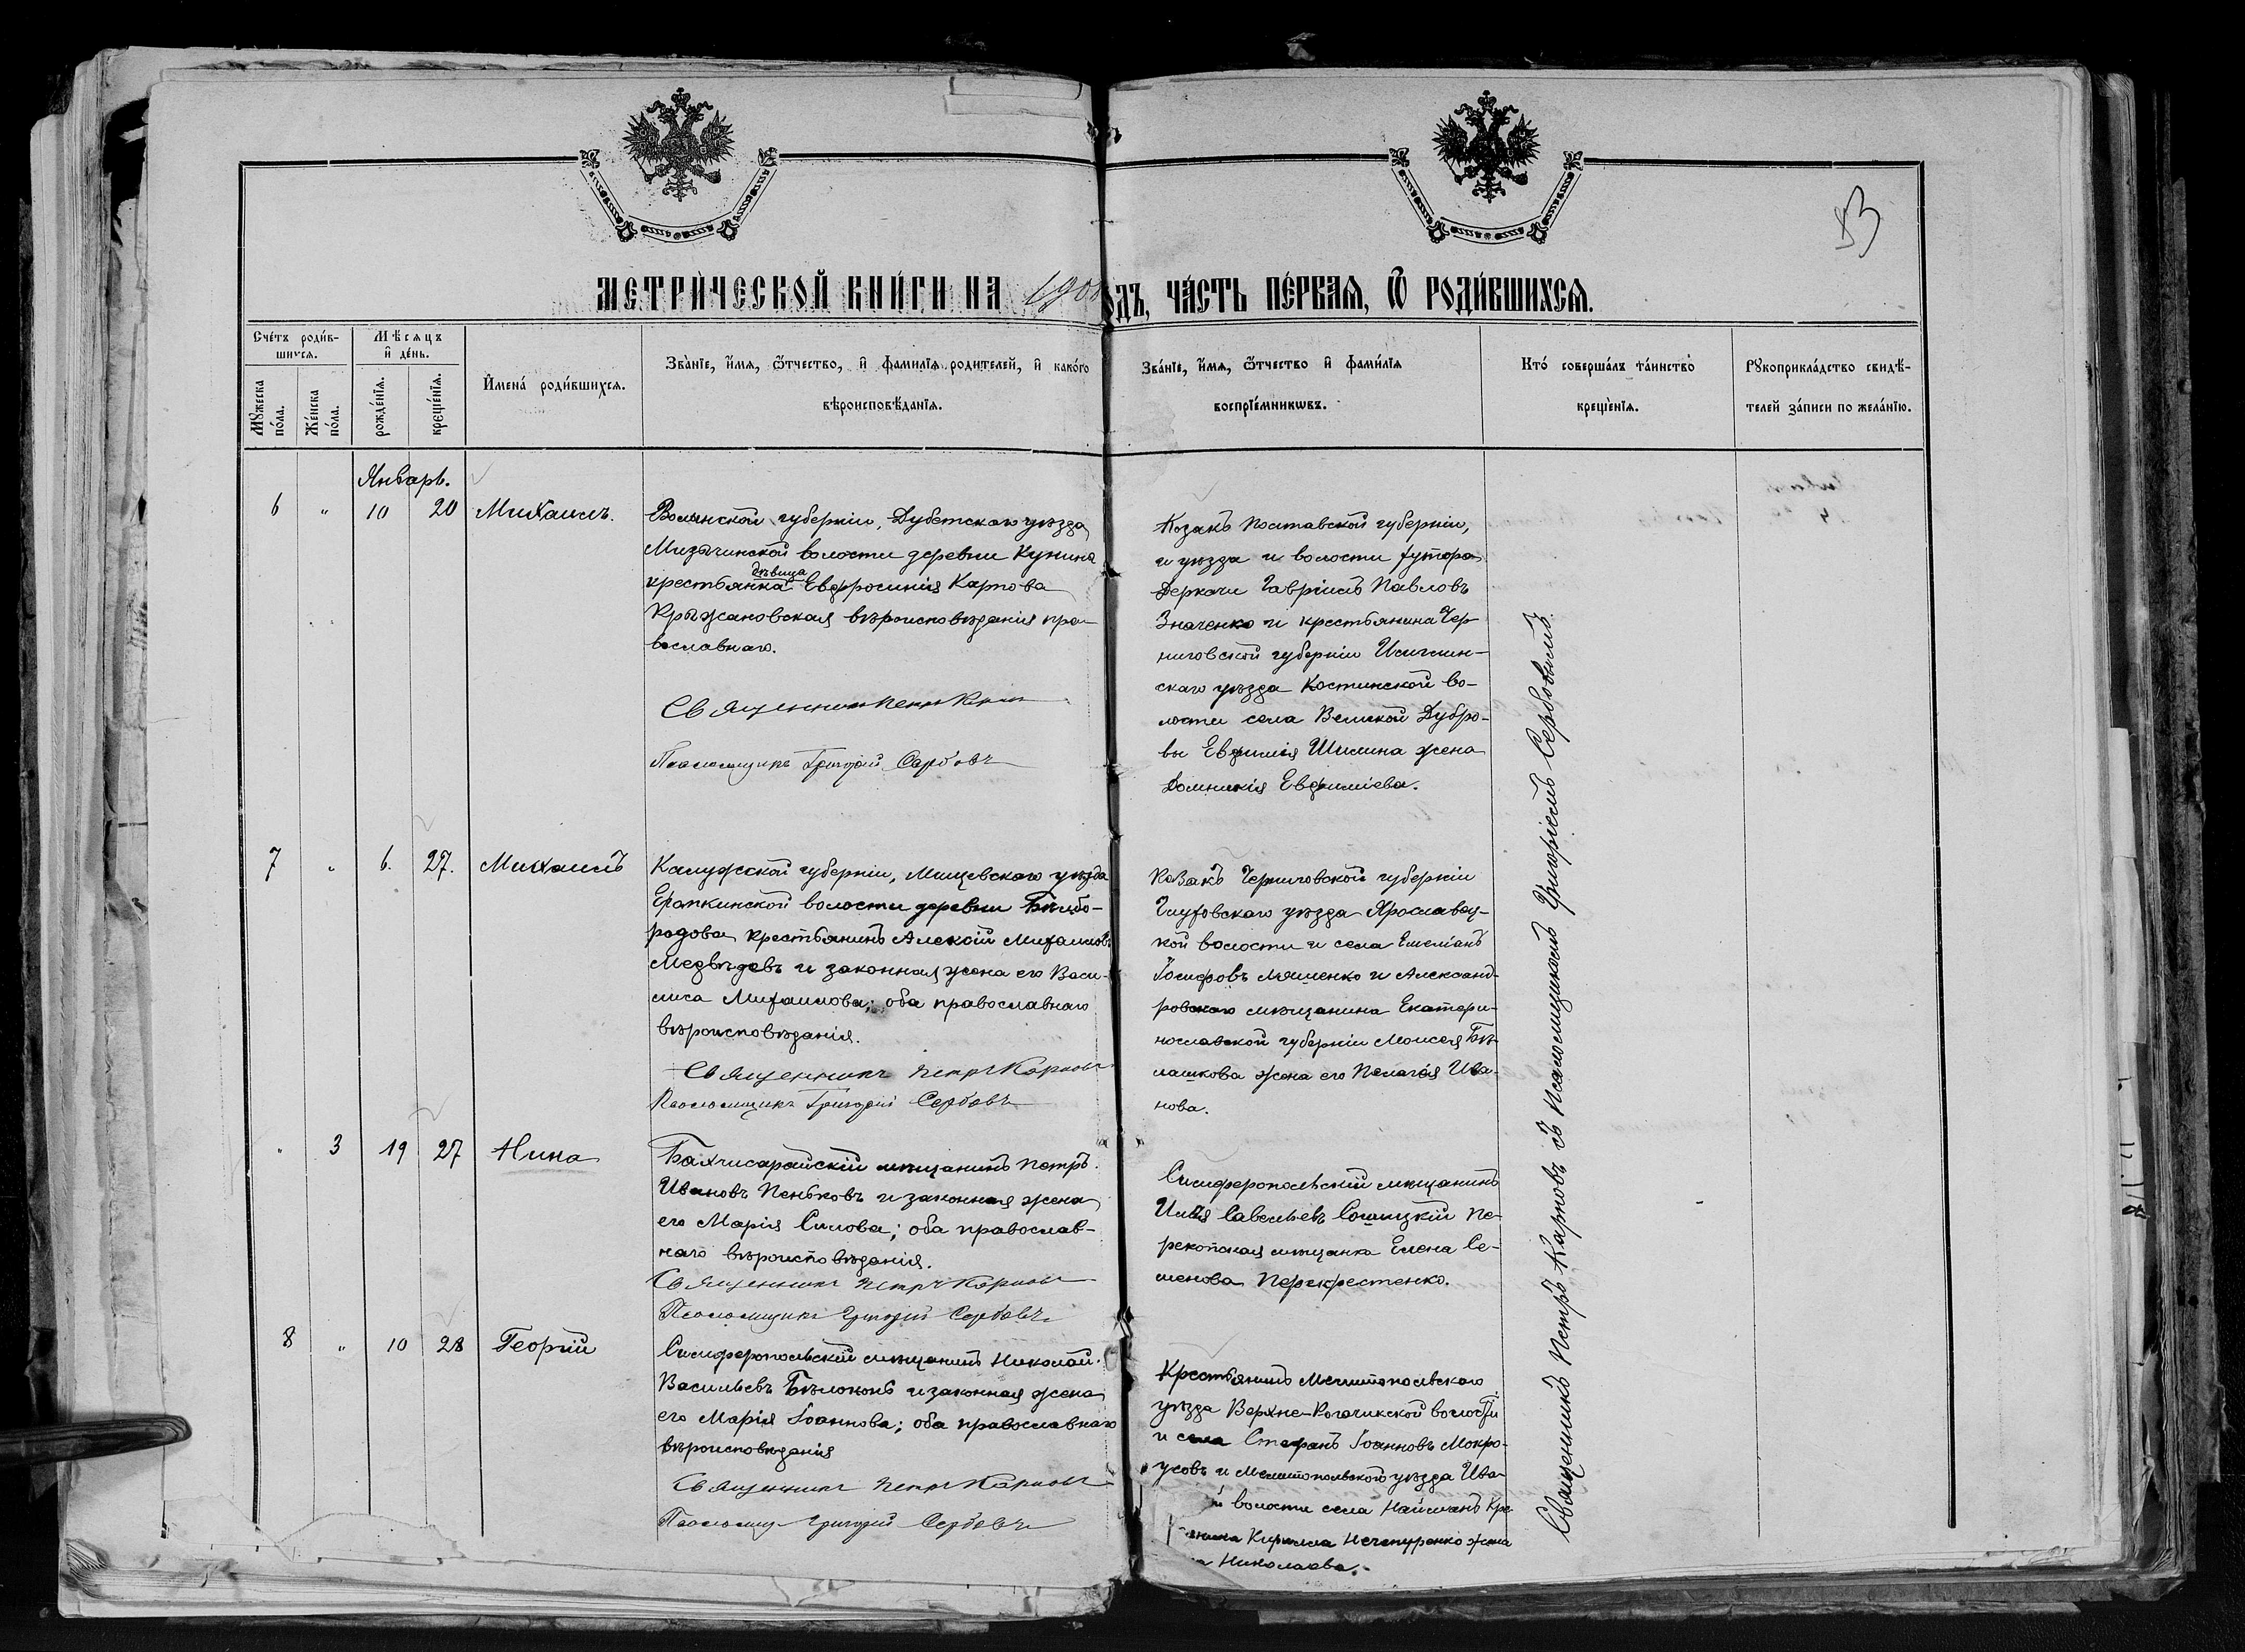 53
МЕТРИ́ЧЕСКОЙ КНИ́ГИ НА 190 ОДЪ, ЧА́СТЬ ПЕ́РВАЯ, Ѿ РОДИ́ВШИХСЯ.
Сче́тъ роди́в-
шихся.
Мѣ́сяцъ
и҆ де́нь.
Мꙋ́жеска
по́ла.
Же́нска
по́ла.
рожде́нїѧ.
креще́нїѧ.
И҆мена̀ роди́вшихсѧ.
Зва́нїе, и҆́мѧ, ѻ҆́тчество, и҆ фами́лїѧ родителей, и҆ како́гѡ
вѣроисповѣ́данїѧ.
Зва́нїе, и҆́мѧ, ѻ҆́тчество и҆ фами́лїѧ
воспрїе́мникѡвъ.
Кто̀ соверша́лъ та́инство
креще́нїѧ.
Рꙋкоприкла́дство свидѣ́-
телей за́писи по жела́нїю.
Январь.
6 " 10 20 Михаилъ.
Волынской губерніи, Дубенскаго уѣзда
Мизочинской волости деревни Кунина
дѣвица
крестьянка Евфросинія Карпова
Крыжановская вѣроисповѣданія пра-
вославнаго.
Священникъ Петръ Карповъ
Псаломщикъ Григорій Сербовъ
Козакъ Полтавской губерніи,
и уѣзда и волости хутора
Деркачи Гавріилъ Павловъ
Значенко и крестьянина Чер-
ниговской губерніи
скаго уѣзда Костинской во-
лости села Великой Дубро-
вы Евфимія Шилина жена
Домникія Евфиміева.
7 " 6. 27. Михаилъ
Калужской губерніи, Мещевскаго уѣзда
волости деревни Бѣлобо-
родова крестьянинъ Алексій Михаиловъ
Медвѣдевъ и законная жена его Васи-
лиса Михаилова; оба православнаго
вѣроисповѣданія.
Священникъ Петръ Карповъ
Псаломщикъ Григорій Сербовъ
Козакъ Черниговской губерніи
Глуховскаго уѣзда Ярославец-
кой волости и села Емеліанъ
Іосифовъ Ляшенко и Александ-
ровскаго мѣщанина Екатери-
нославской губерніи Моисея Бѣ-
лашкова жена его Пелагея Ива-
нова.
" 3 19 27 Нина
Бахчисарайскій мѣщанинъ Петръ
Ивановъ Пеньковъ и законная жена
его Марія Силова; оба православ-
наго вѣроисповѣданія.
Священникъ Петръ Карповъ
Псаломщикъ Григорій Сербовъ
Симферопольскій мѣщанинъ
Илія Савельевъ Сошицкій Пе-
рекопская мѣщанка Елена Се-
менова Перекрестенко.
8 " 10 28 Георгій
Симферопольскій мѣщанинъ Николай
Васильевъ Бѣлоконь и законная жена
его Марія Іоаннова; оба православнаго
вѣроисповѣданія
Священникъ Петръ Карповъ
Псаломщ Григорій Сербовъ
Крестьянинъ Мелитопольскаго
уѣзда Верхне-Рогачикской волости
и села Стефанъ Іоанновъ Мокро-
усовъ и Мелитопольскаго уѣзда Ива-
й волости села Найманъ Кре
янина Кирилла Нечепуренко жена
Николаева.
Священникъ Петръ Карповъ съ Псаломщикомъ Григоріемъ Сербовымъ